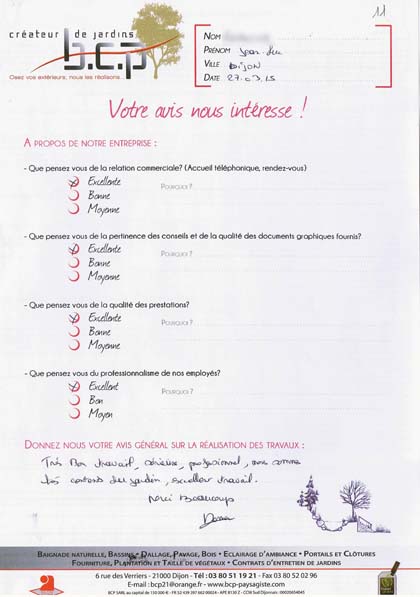 11
créateur de jardins
b.c.p
Osez vos extérieurs, nous les réalisons...
NOM
PRÉNOM Jean-Luc
VILLE DIJON
DATE 27.03.15
Votre avis nous intéresse !
A PROPOS DE NOTRE ENTREPRISE :
- Que pensez vous de la relation commerciale? (Accueil téléphonique, rendez-vous)
Excellente POURQUOI ?
Bonne
Moyenne
- Que pensez vous de la pertinence des conseils et de la qualité des documents graphiques fournis?
Excellente POURQUOI ?
Bonne
Moyenne
- Que pensez vous de la qualité des prestations?
Excellente POURQUOI ?
Bonne
Moyenne
- Que pensez vous du professionnalisme de nos employés?
Excellent POURQUOI ?
Bon
Moyen
DONNEZ NOUS VOTRE AVIS GÉNÉRAL SUR LA RÉALISATION DES TRAVAUX :
Très Bon travail, sérieux, professionnel, nous sommes
très contents du jardin, excellent travail.
Merci Beaucoup
BAIGNADE NATURELLE, BASSINS • DALLAGE, PAVAGE, BOIS • ECLAIRAGE D'AMBIANCE • PORTAILS ET CLÔTURES
FOURNITURE, PLANTATION ET TAILLE DE VÉGÉTAUX • CONTRATS D'ENTRETIEN DE JARDINS
6 rue des Verriers - 21000 Dijon - Tél : 03 80 51 19 21 - Fax 03 80 52 02 96
E-mail : bcp21@orange.fr - www.bcp-paysagiste.com